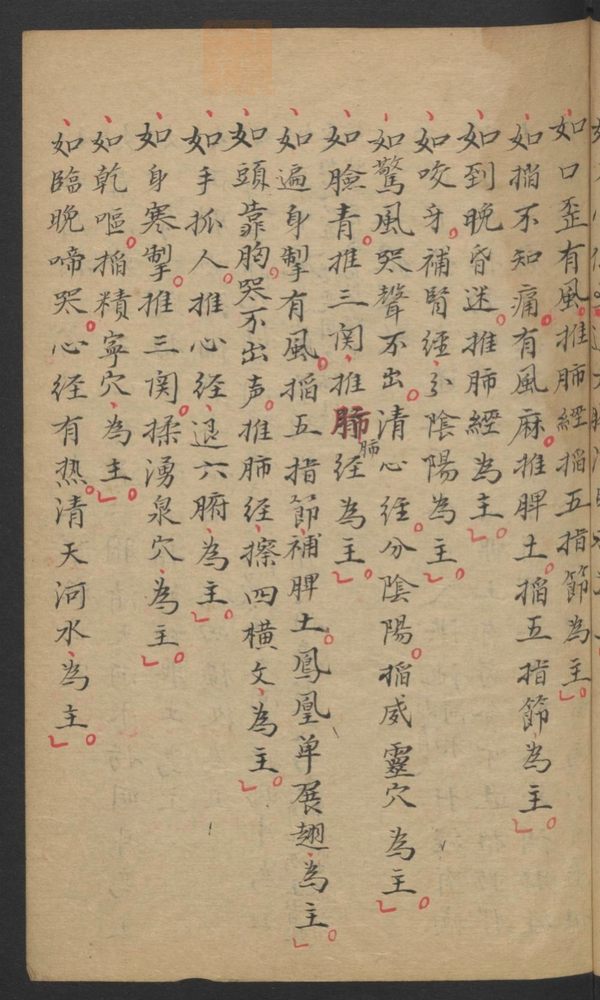 如口歪有風。推肺經掐五指節為主。
如掐不知痛。有風麻。推脾土。掐五指節、為主。
如到晚昏迷。推肺經為主。
如咬牙。補腎經、分陰陽為主。
如驚風哭聲不出。清心經。分陰陽。掐威靈穴為主。
如臉青。推三関、推肺經為主。
肺
如遍身掣有風。掐五指節、補脾土。鳳凰单展翅、為主。
如頭靠胸。哭不出声。推肺經、擦四橫文、為主。
如手抓人。推心經、退六腑、為主。
如身寒掣。推三関。揉湧泉穴、為主。
如乾嘔。掐精寧穴、為主。
如臨晚啼哭。心經有热。清天河水、為主。